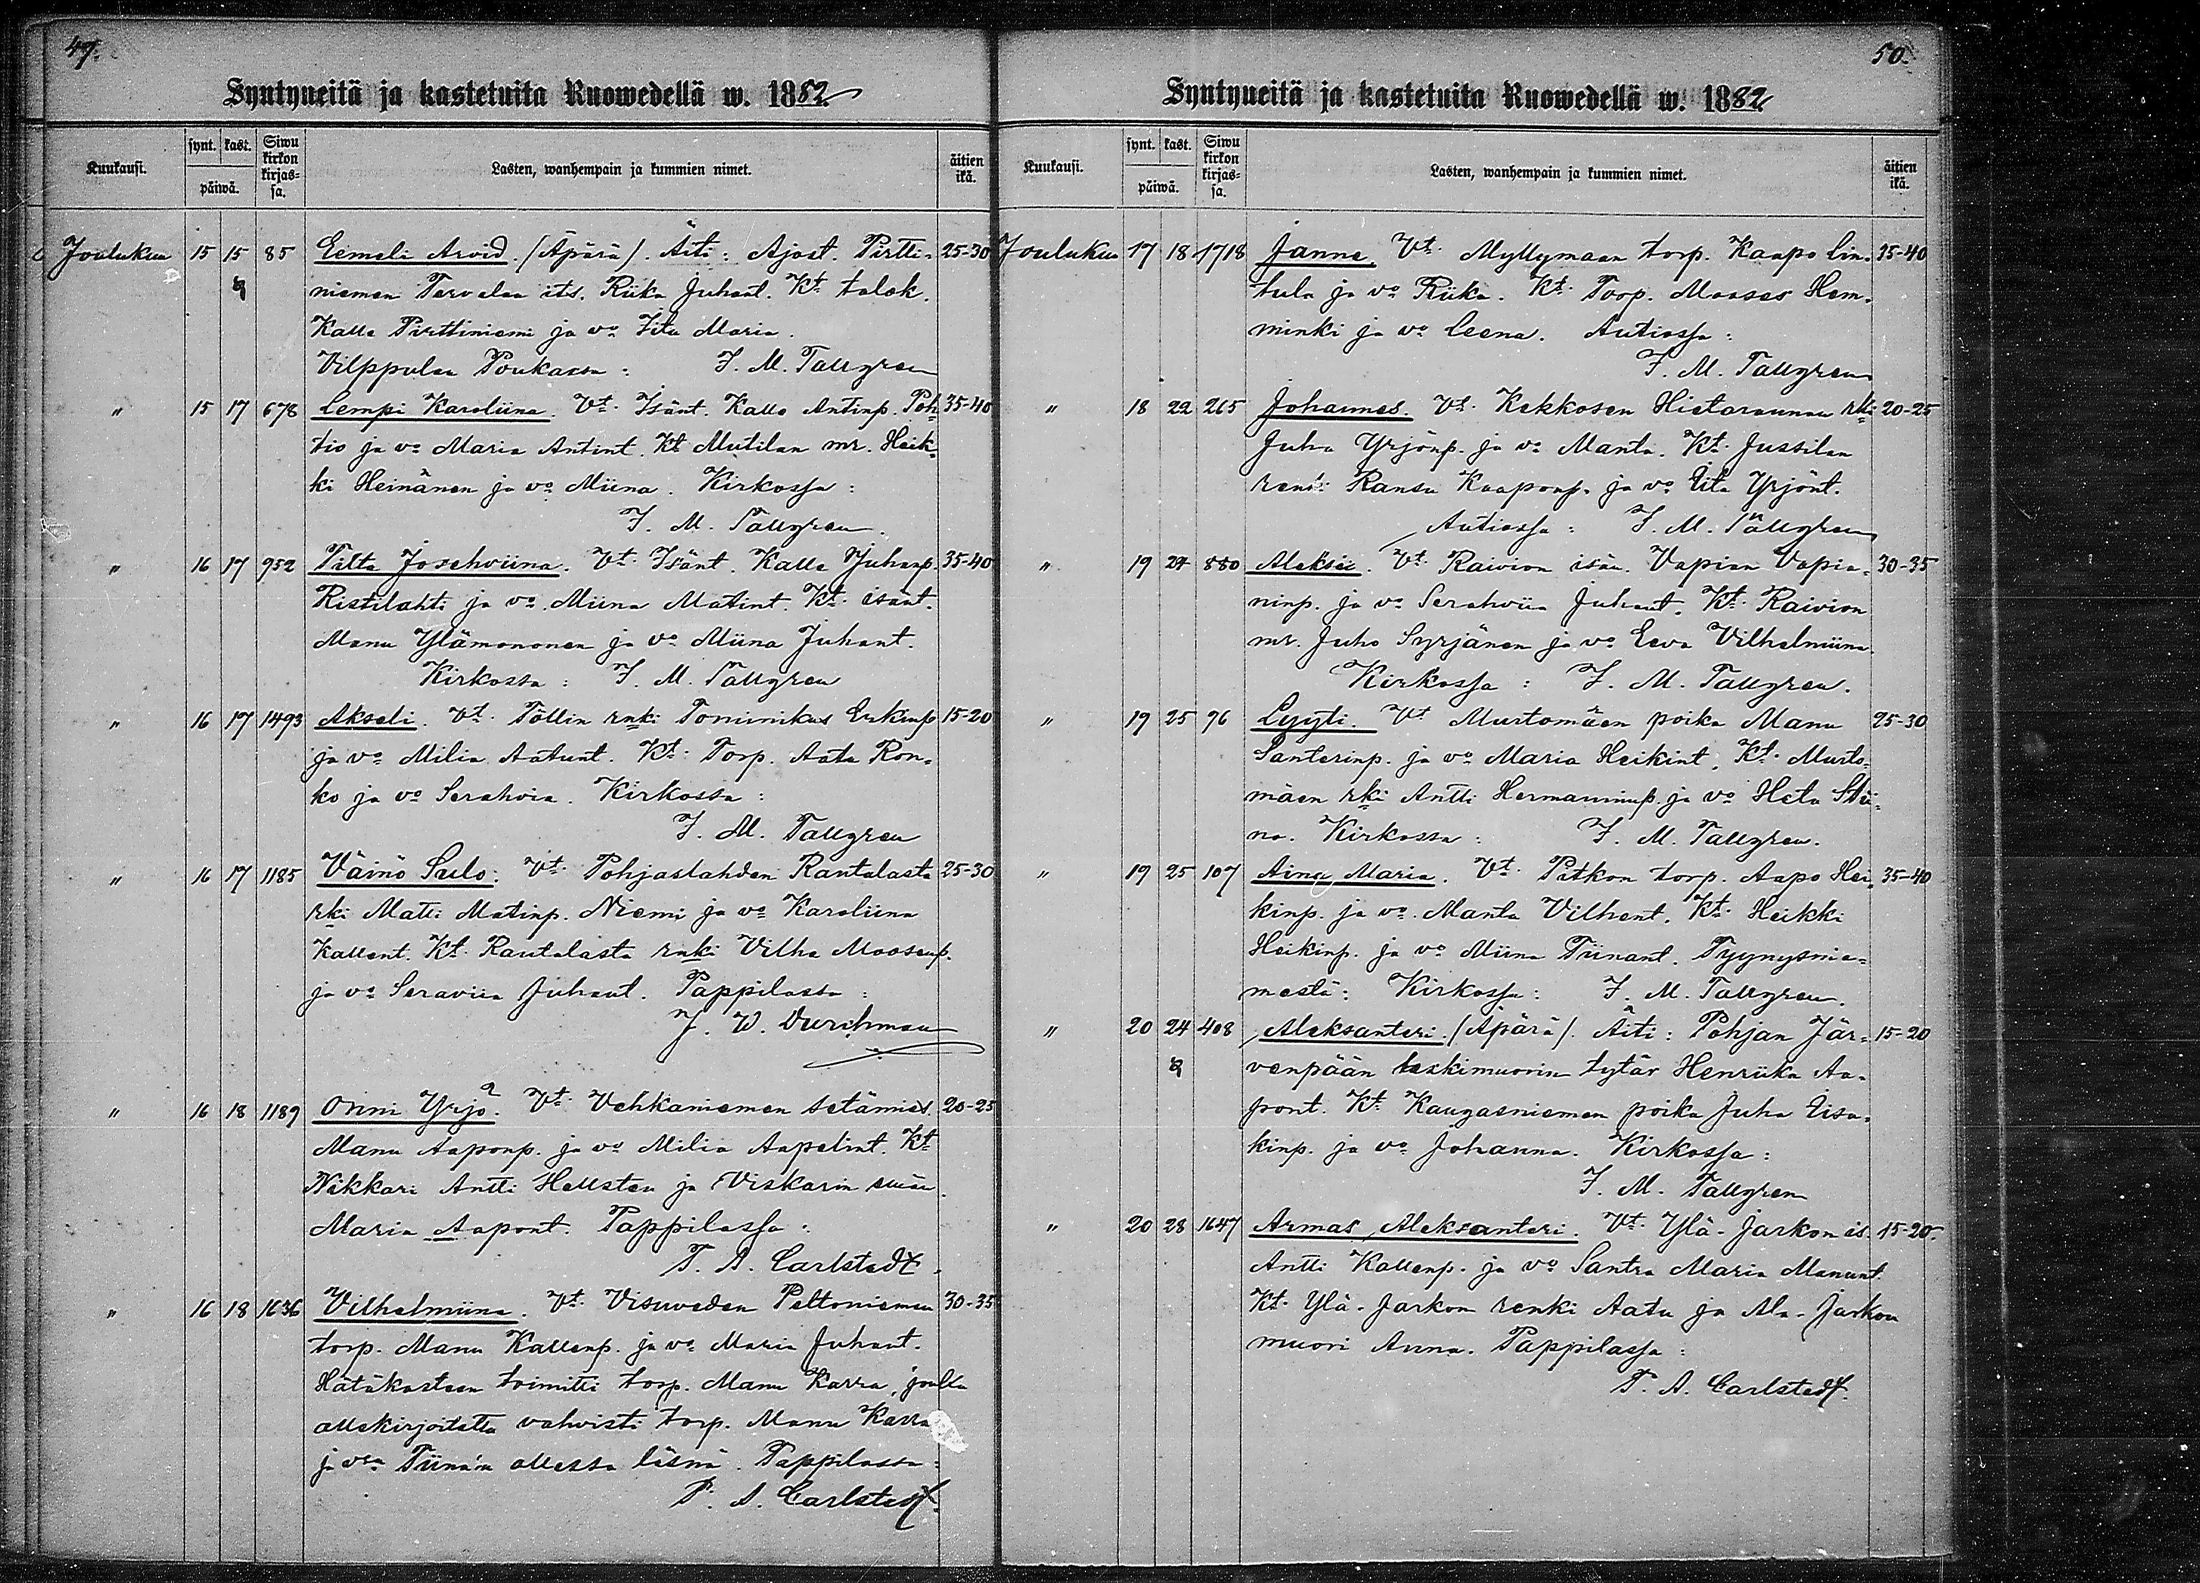 47.
Syntyneitä ja kastetuita Ruowedellä w. 1882
Kuukausi. synt. kast. päiwä. Siwu kirkon kirjas- sa. Lasten, wanhempain ja kummien nimet. äitien ikä.
Joulukuu 15 15 85 Eemeli Arvid. (Äpärä). Äiti: Ajost. Pirtti- 25-30
niemen Tervalan its. Riika Juhant. Kt. talok.
Kalle Pirttiniemi ja vo Iita Maria.
Vilppulan Poukassa: J. M. Tallgren
" 15 17 678 Lempi Karoliina. Vt. Isänt. Kalle Antinp. Poh- 35-40
tio ja vo Maria Antint. Kt. Mutilan mr. Heik-
ki Heinänen ja vo Miina. Kirkossa:
J. M. Tallgren.
" 16 17 952 Tilta Josehviina. Vt. Isänt. Kalle Juhanp. 35-40
Ristilahti ja vo Miina Matint. Kt. isänt.
Manu Ylämononen ja vo Miina Juhant.
Kirkossa: J. M. Tallgren
" 16 17 1493 Akseli. Vt. Töllin rnki Tominikus Erkinp. 15-20
ja vo Milia Aatunt. Kt. Torp. Aatu Ron-
ko ja vo Serahvia. Kirkossa:
J. M. Tallgren
" 16 17 1185 Väinö Sulo. Vt. Pohjaslahden Rantalasta 25-30
rki Matti Matinp. Niemi ja vo Karoliina
Kallent. Kt. Rantalasta rnki Vilho Moosenp.
ja vo Seraviia Juhant. Pappilassa:
J. W. Durchman
" 16 18 1189 Onni Yrjö. Vt. Vehkaniemen setämies 20-25
Manu Aaponp. ja vo Milia Aapelint. Kt.
Nikkari Antti Hellsten ja Viskarin emän.
Maria Aapont. Pappilassa:
T. A. Carlstedt.
" 16 18 1636 Vilhelmiina. Vt. Visuveden Peltoniemen 30-35
torp. Manu Kallenp. ja vo Maria Juhant.
Hätäkasteen toimitti torp. Manu Karra, jonka
allekirjoitettu vahvisti torp. Manu Karra
ja von Tiina'n ollessa läsnä. Pappilassa:
T. A. Carlstedt.
50.
Syntyneitä ja kastetuita Ruowedellä w. 1882
Kuukausi. synt. kast. päiwä. Siwu kirkon kirjas- sa. Lasten, wanhempain ja kummien nimet. äitien ikä.
Joulukuu 17 18 1718 Janne. Vt. Myllymaan torp. Kaapo Lin- 35-40
tula ja vo Riika. Kt. Torp. Mooses Hem-
minki ja vo Leena. Autiossa:
J. M. Tallgren
" 18 22 265 Johannes. Vt. Kekkosen Hietarannan rki 20-25
Juha Yrjönp. ja vo Manta. Kt. Jussilan
renki Ransu Kaaponp. ja vo Eita Yrjönt.
Autiossa: J. M. Tallgren
" 19 24 880 Aleksii. Vt. Raivion isän. Vapian Vapia- 30-35
ninp. ja vo Serahviia Juhant. Kt. Raivion
mr. Juho Syrjänen ja vo Eeva Vilhelmiina.
Kirkossa: J. M. Tallgren.
" 19 25 96 Lyyti. Vt. Murtomäen poika Manu 25-30
Santerinp. ja vo Maria Heikint. Kt. Murto-
mäen rki Antti Hermanninp. ja vo Heta Stii-
na. Kirkossa: J. M. Tallgren.
" 19 25 107 Aina Maria. Vt. Pitkon torp. Aapo Hei- 35-40
kinp. ja vo Manta Vilhent. Kt. Heikki
Heikinp. ja vo Miina Tiinant. Tyynysnie-
mestä: Kirkossa: J. M. Tallgren.
" 20 24 408 Aleksanteri. (Äpärä). Äiti: Pohjan Jär- 15-20
venpään leskimuorin tytär Henriika Aa-
pont. Kt. Kangasniemen poika Juha Eisa-
kinp. ja vo Johanna. Kirkossa:
J. M. Tallgren
" 20 28 1647 Armas Aleksanteri. Vt. Ylä-Jarkon is. 15-20.
Antti Kallenp. ja vo Santra Maria Manunt.
Kt. Ylä-Jarkon renki Aatu ja Ala-Jarkon
muori Anna. Pappilassa:
T. A. Carlstedt.